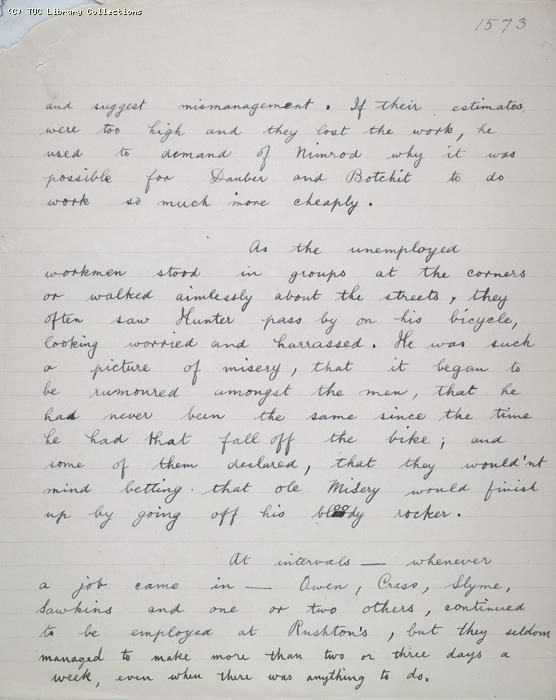 (C) TUC Library Collections
1573
and suggest mismanagement. If their estimates
were too high and they lost the work, he
used to demand of Nimrod why it was
possible for Dauber and Botchit to do
work so much more cheaply.
As the unemployed
workmen stood in groups at the corners
or walked aimlessly about the streets, they
often saw Hunter pass by on his bicycle,
looking worried and harrassed. He was such
a picture of misery, that it began to
be rumoured amongst the men, that he
had never been the same since the time
he had that fall off the bike; and
some of them declared, that they would'nt
mind betting that ole Misery would finish
up by going off his bloody rocker.
At intervals — whenever
a job came in — Owen, Crass, Slyme,
Sawkins and one or two others, continued
to be employed at Rushton's, but they seldom
managed to make more than two or three days a
week, even when there was anything to do.